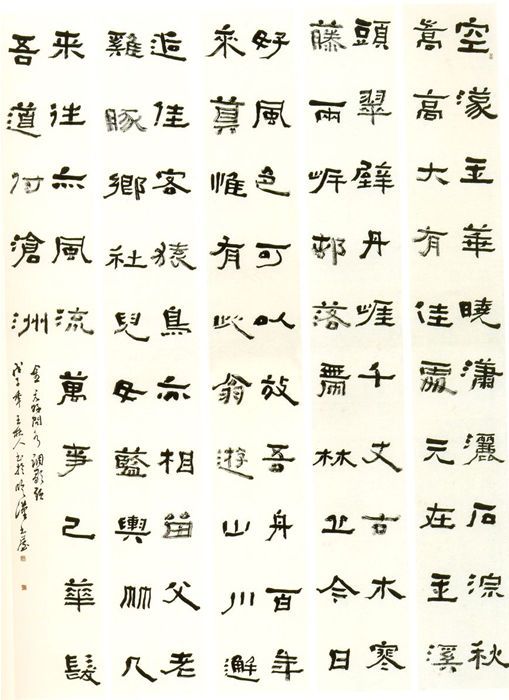 空濛玉華曉瀟灑石淙秋
嵩高大有佳處元在玉溪
頭翠壁丹崖千丈古木寒
藤兩岸邨落帶林丘今日
好風色可以放吾舟百年
來算惟有此翁遊山川邂
逅佳客猿鳥亦相留父老
雞豚鄉社兒女藍輿竹几
来往亦風流萬事已華髮
吾道付滄洲
金元好問水調歌頭
戊子年王人書於漢